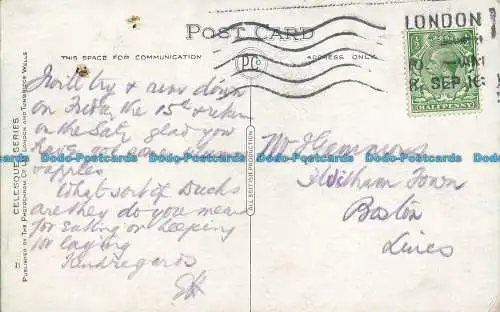 POST CARD
THIS SPACE FOR COMMUNICATION
ADDRESS ONLY
LONDON
8. SEP. 16
HALFPENNY
I will try & run down
on Friday the 15th & return
on the Saty, glad you
have got some
& apples
What sort of Ducks
are they do you mean
for Eating or keeping
for laying
Kind regards
Mr
Witham Town
Boston
Lincs
CELESQUE SERIES
PUBLISHED BY THE PHOTOCHROM CO. LTD. LONDON AND TUNBRIDGE WELLS
ALL BRITISH PRODUCTION
Dodo-Postcards Dodo-Postcards Dodo-Postcards Dodo-Postcards